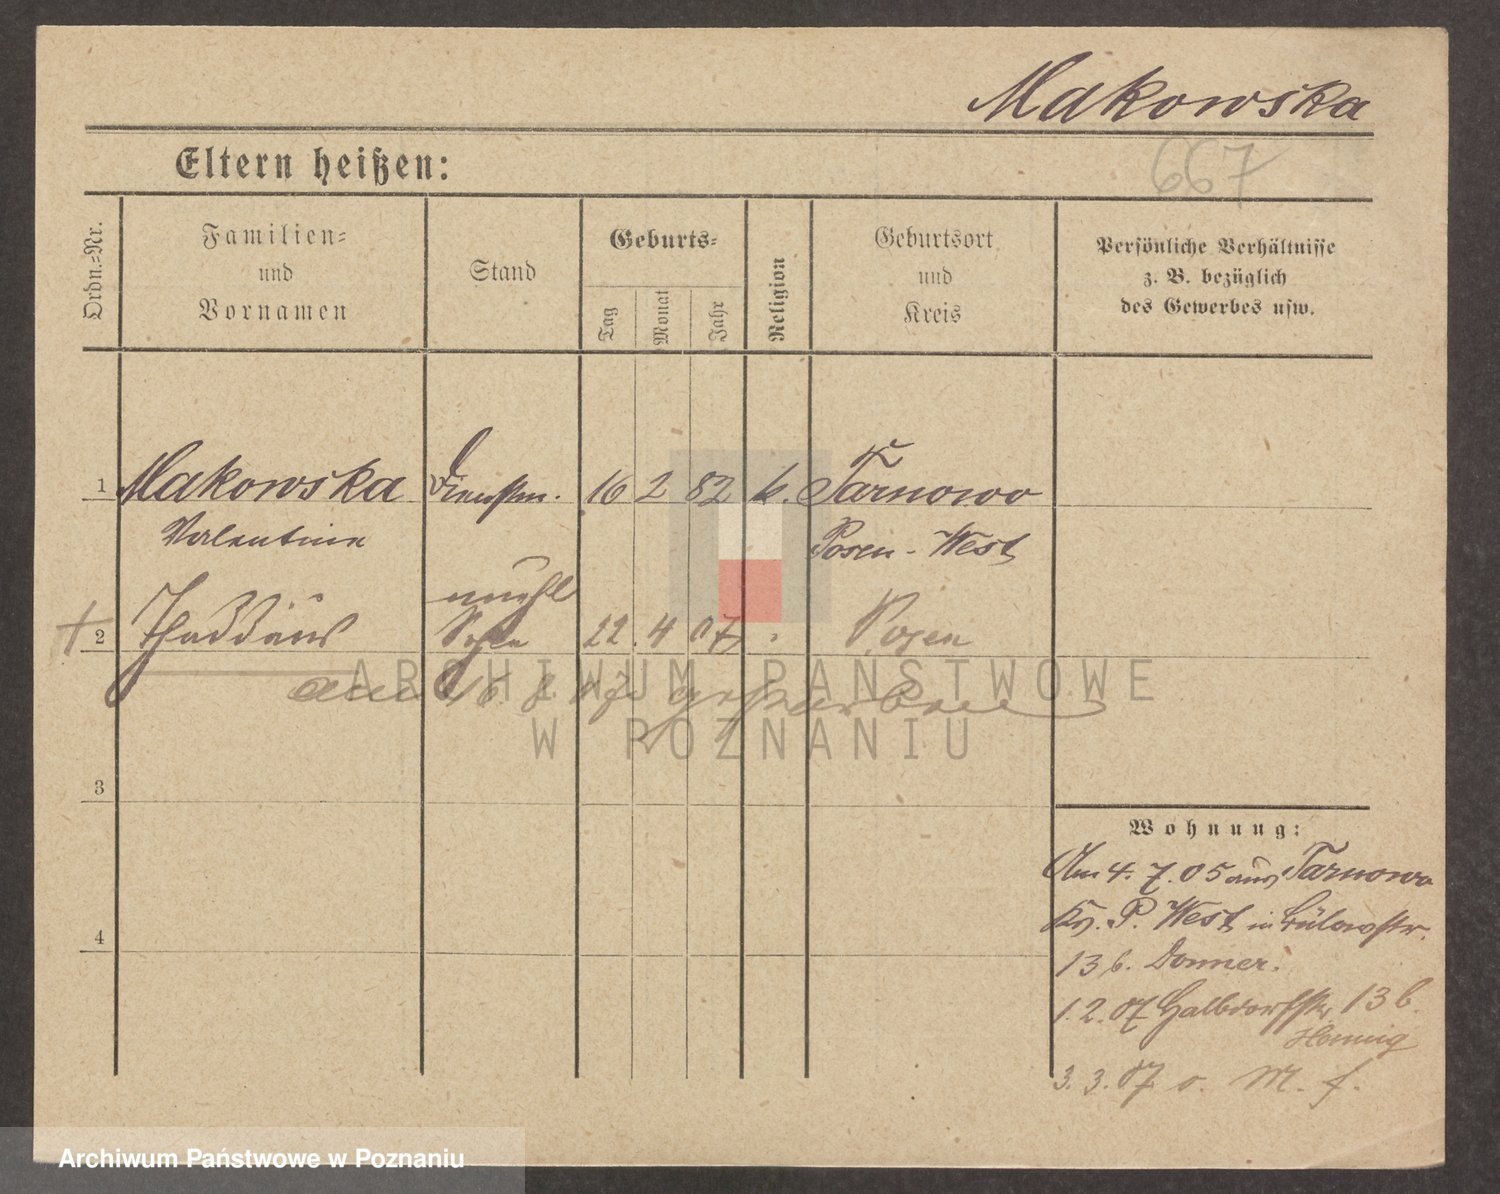 Makowska
667
Eltern heißen:
Ordn.-Nr.
Familien-
und
Vornamen
Stand
Geburts-
Tag
Monat
Jahr
Religion
Geburtsort
und
Kreis
Persönliche Verhältnisse
z. B. bezüglich
des Gewerbes usw.
1 Makowska Dienstm. 16 2 82 k. Tarnowo
Valentine Posen-West
unehl
† 2 Thaddäus Sohn 22. 4 07 Posen
am 16. 8 07 gestorben
ARCHIWUM PAŃSTWOWE
W POZNANIU
3
4
Wohnung:
Am 4. 7. 05 aus Tarnowo
Kr. P. West in Bülowstr.
13 b. Donner.
1. 2. 07 Halbdorfstr. 13 b.
Hennig
3. 3. 07 o. M. f.
Archiwum Państwowe w Poznaniu